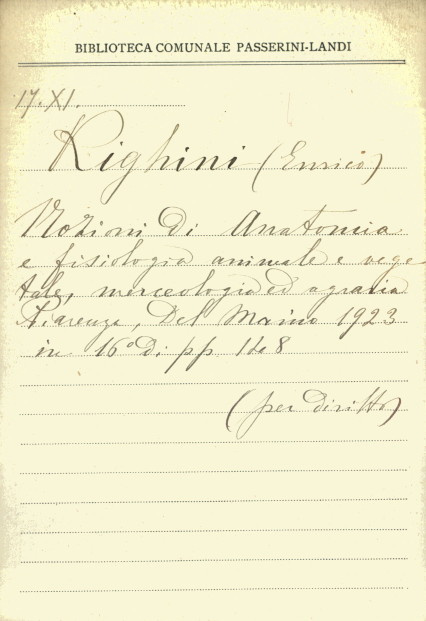 BIBLIOTECA COMUNALE PASSERINI-LANDI
17. XI.
Righini (Enrico)
Nozioni di Anatomia
e fisiologia animale e vege-
tale, merceologia ed agraria
Piacenza, Del Maino 1923
in 16° di pp 148
(per diritto)